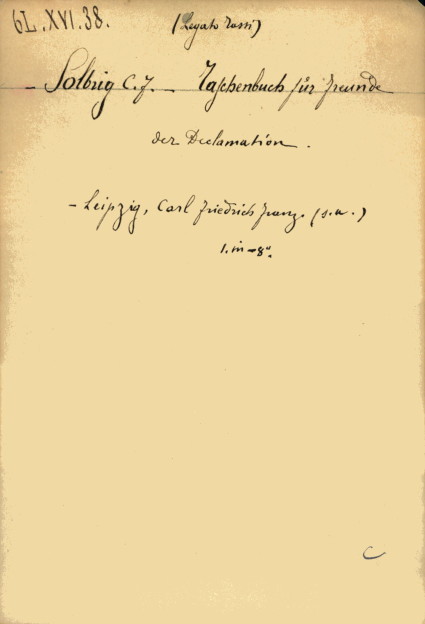 6L.XVI.38.
(Legato Tassi)
- Solbrig C. F. - Taschenbuch für Freunde
der Declamation.
- Leipzig, Carl Friedrich Franz. (s.a.)
1. in-8°.
C